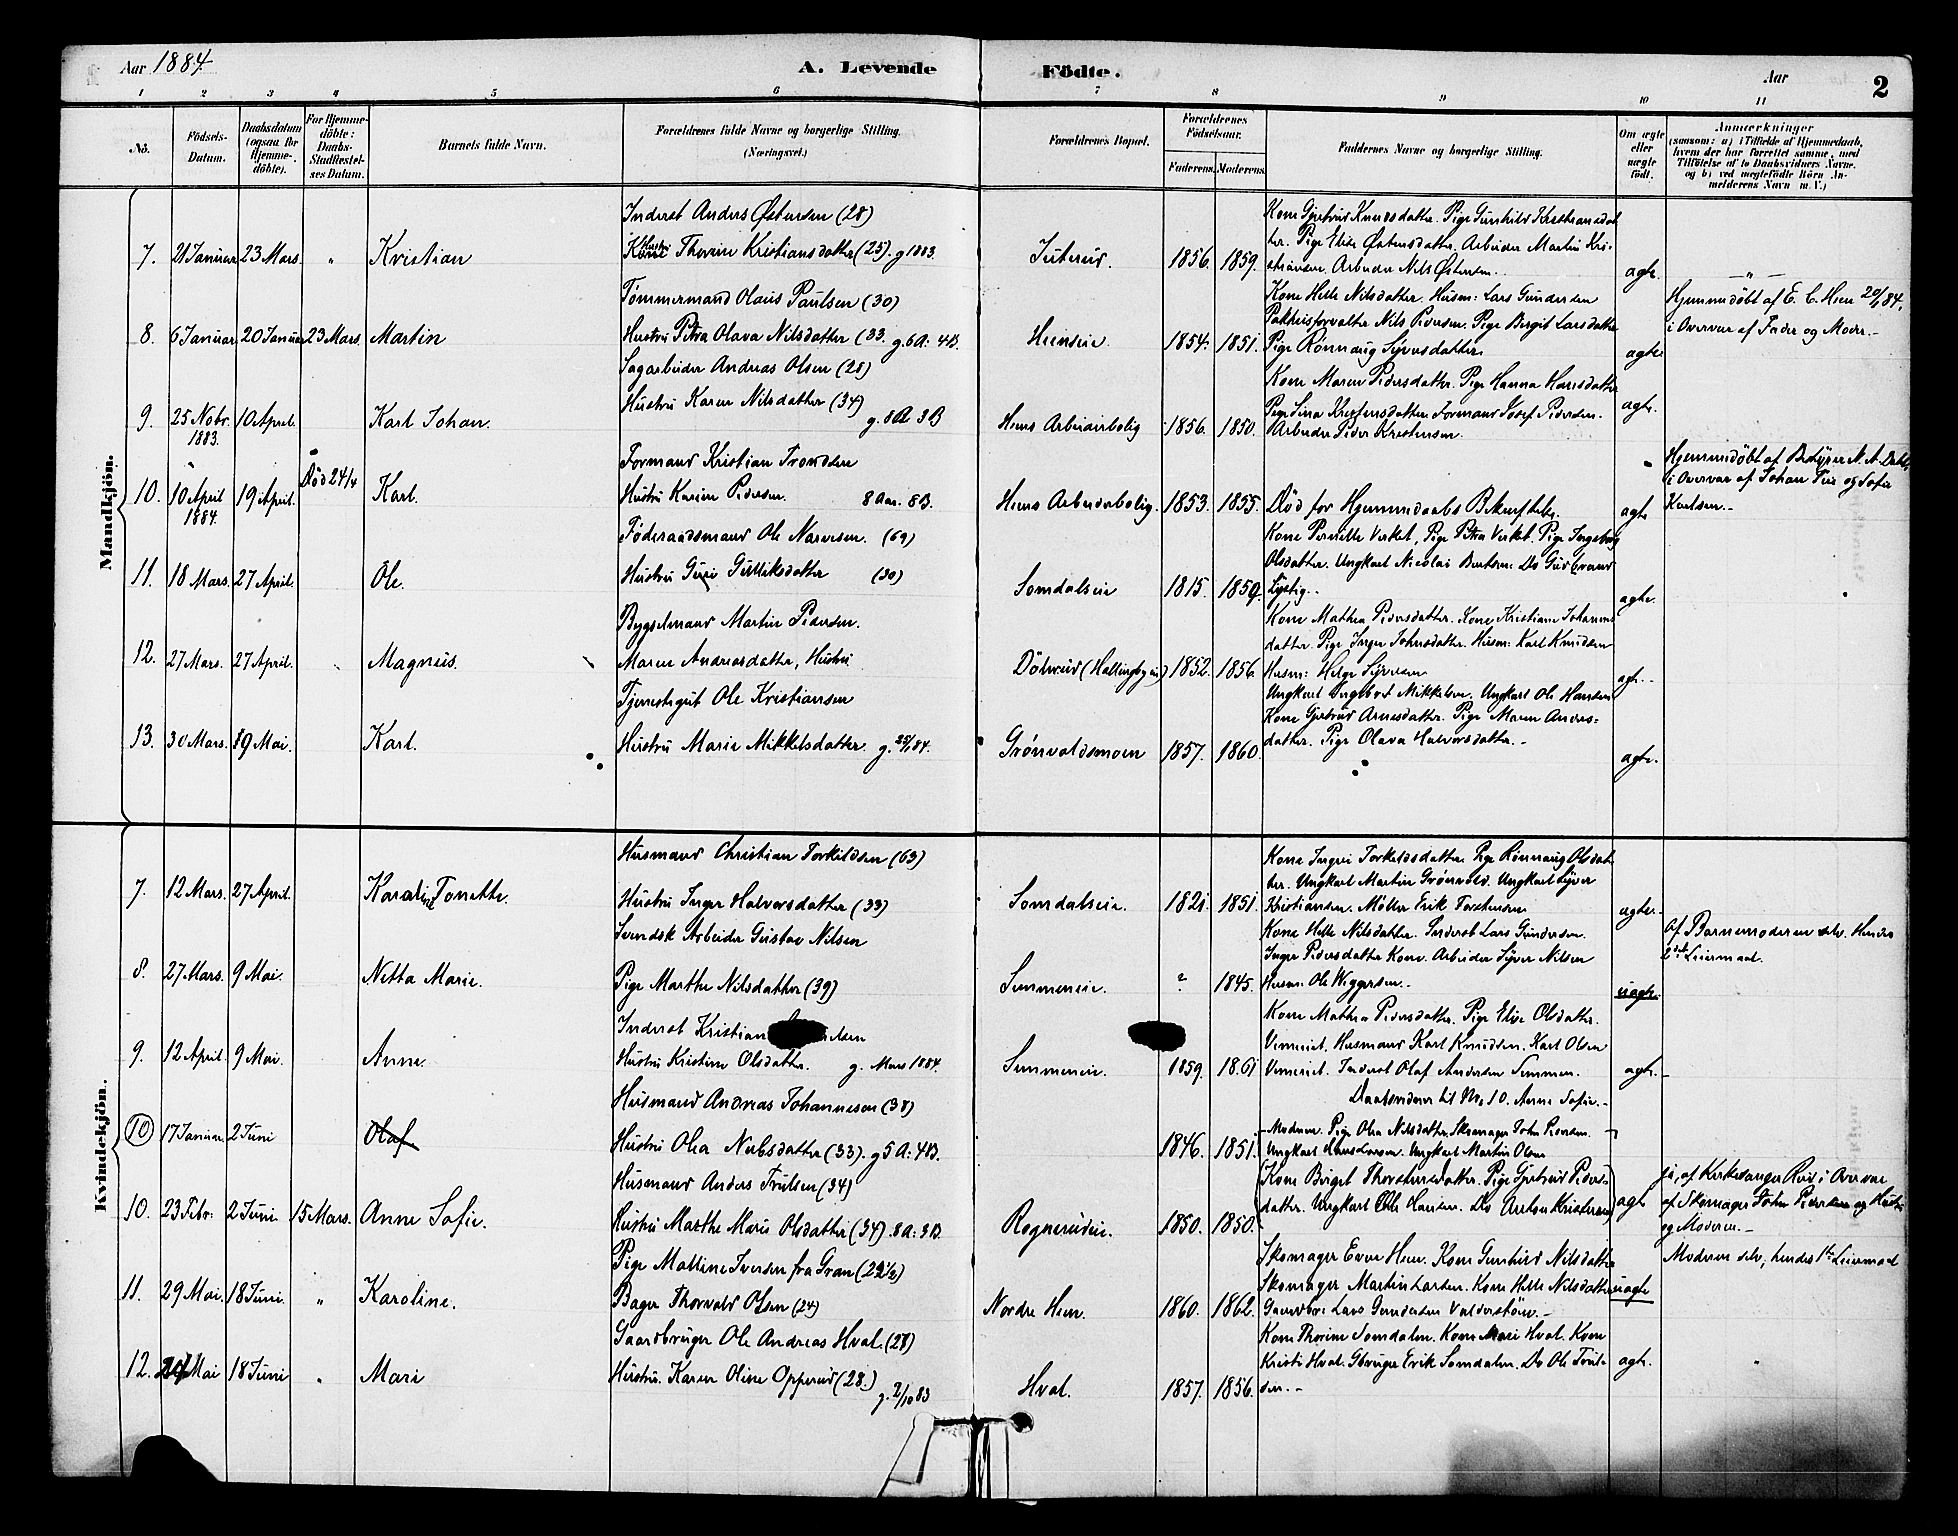 Aar 1884. A. Levende Födte. Aar 2
1 2 3 4 5 6 7 8 9 10 11
No. Födsels-Datum. Daabsdatum (ogsaa for Hjemme-döbte). For Hjemme-döbte: Daabs-Stadfæstel-ses Datum. Barnets fulde Navn. Forældrenes fulde Navne og borgerlige Stilling. (Næringsvei.) Forældrenes Bopæl. Forældrenes Födselsaar. Faderens. Moderens. Faddernes Navne og borgerlige Stilling. Om ægte eller uægte födt. Anmærkninger
(saasom: a) i Tilfælde af Hjemmedaab,
hvem der har forrettet samme, med
Tilföielse af to Daabsvidners Navne.
og b) ved uægtefödte Börn An-
melderens Navn m. V.)
Mandkjön.
Inderst Anders Østensen (28)
Kone Gjertrud Knudsdatter. Pige Gunhild Kristiansdat
7. 21 Januar 23 Mars. " Kristian
Hustru
Kone Thorine Kristiansdatter (25). g 1883.
1856. 1859.
ter. Pige Elise Østensdatter. Arbeider Martin Kri-
stiansen. Arbeider Nils Østensen.
ægte. "
Tømmermand Olaus Paulsen (30)
Kone Helle Nilsdatter. Husm: Lars Gundersen
Hjemmedøbt af E. C. Hen 20/1 84.
8. 6 Januar 20 Januar 23 Mars. Martin
Hustru Petra Olava Nilsdatter (33. g. 6 A: 4B.
Henseie. 1854. 1851.
Pakhusforvalter Nils Pedersen. Pige Bergit Larsdatter
Pige Rønnaug Syversdatter.
ægte
i Overvær af Fader og Moder.-
Sagarbeider Andreas Olsen (28)
Kone Maren Pedersdatter. Pige Hanna Hansdatter
9. 25 Nobr. 1883. 10 April. Karl Johan.
Hustru Karen Nilsdatter (34)
g. 8 A 3 B
Hens Arbeiderbolig 1856. 1850.
Arbeider Peder Kristensen.
ægte.
Formand Kristian Trondsen
10. 10 April 1884. 19 April. Død 24/4 Karl.
Hustru Karine Pedersen. 8 Aar. 8 B.
Hens Arbeiderbolig. 1853. 1855.
Død før Hjemmedaabs Bekræftelse.
ægte
Hjemmedøbt af N. A. Dahl,
i Overvær af Johan og Sofie
Karlsen.-
Føderaadsmand Ole Narvesen. (69)
Kone Pernille Verket, Pige Petra Verket. Pige Ingeborg
11. 18 Mars. 27 April. Ole.
Hustru Guri Gulliksdatter (30)
Somdalseie 1815. 1859.
Olsdatter. Ungkarl Nicolai Berntsen. Do Gudbrand
Lystig.-
ægte.
Bygselmand Martin Pedersen.
Kone Mathea Pedersdatter. Kone Kristiane Johannes
12. 27 Mars. 27 April. Magnus.
Maren Andreasdatter, Hustru
1852. 1856.
datter. Pige Inger Johnsdatter. Husm: Karl Knudsen
Husm: Helge Syversen
ægte.-
Tjenestegut Ole Kristiansen
Ungkarl Ingebret Mikkelsen. Ungkarl Ole Hansen
13. 30 Mars. 19 Mai. Karl.
Hustru Marie Mikkelsdatter. g. 25/1 84.
Grønvoldsmoen 1857. 1860.
Kone Gjertrud Arnesdatter. Pige Maren Andreas-
datter. Pige Olava Halvorsdatter.-
ægte.
Kvindekjön.
Husmand Christian Torkildsen (63)
Kone Ingri Torkildsdatter. Pige Rønnaug Olsdat
7. 12 Mars. 27 April. Karoline Tonette.
Hustru Inger Halvorsdatter (33)
Somdalseie. 1821. 1851.
ter. Ungkarl Martin Grønvold. Ungkarl Syver
Kristiansen. Møller Erik Torstensen
ægte.
Svendsk Arbeider Gustav Nilsen
Kone Helle Nilsdatter. Inderst Lars Gundersen.
Af Barnemoderen selv. Hendes
2det Leiermaal.
8. 27 Mars. 9 Mai. Netta Marie.
Pige Marthe Nilsdatter (39)
Semmeneie. ? 1845.
Inger Pedersdatter Kone. Arbeider Syver Nilsen
Husm: Ole Wiggersen.-
uægte.
Inderst Kristian
Kone Mathea Pedersdatter. Pige Elise Olsdatter.
9. 12 April. 9 Mai. Anne.
Hustru Kristine Olsdatter. g. Mars 1884.
Semmeneie. 1859. 1861
Vemeriet. Husmand Karl Knudsen. Karl Olsen
Vemeriet. Inderst Olaf Andersen Semmen.
ægte.-
Husmand Andreas Johannesen (38)
Daabsvidner til No 10. Anne Sofie.-
10 17 Januar. 2 Juni Olaf
Hustru Olea Nubsdatter (33). g 5 A: 4B.
1846. 1851.
Moderen. Pige Olea Nilsdatter. Skomager John Pedersen.
Ungkarl Hans Larsen. Ungkarl Martin Olsen
Husmand Anders Trulsen (34)
Kone Birgit Thorstensdatter. Pige Gjertrud Peders-
10. 23 Febr: 2 Juni. 15 Mars. Anne Sofie.
Hustru Marthe Marie Olsdatter (34). 8 A: 3B.
Rognerudeie. 1850. 1850.
datter. Ungkarl Helle Hansen. Do Anton Kristensen
ægte
ja, af Kirkesanger Rud i Overvær
af Skomager John Pedersen og Hustru
og Moderen.-
Pige Malline Iversen fra Gran (22 1/2)
Skomager Even Hen. Kone Gunhild Nilsdatter
Moderen selv, hendes 1ste Leiermaal
11. 29 Mai. 18 Juni. " Karoline.
Bager Thorvald Olsen (24)
Nordre Hen. 1860. 1862.
Skomager Martin Larsen. Kone Helle Nilsdatter
Gaardbr: Lars Gundersen
uægte
Gaardbruger Ole Andreas Hval. (28)
Kone Thorine Somdalen. Kone Mari Hval. Kone
12. 24 Mai 18 Juni " Mari
Hustru. Karen Oline Opperud (28.)
g. 2/10 83
Hval. 1857. 1856.
Kristi Hval. Gbruger Erik Somdalen. Do Ole Trul-
sen.-
ægte. "